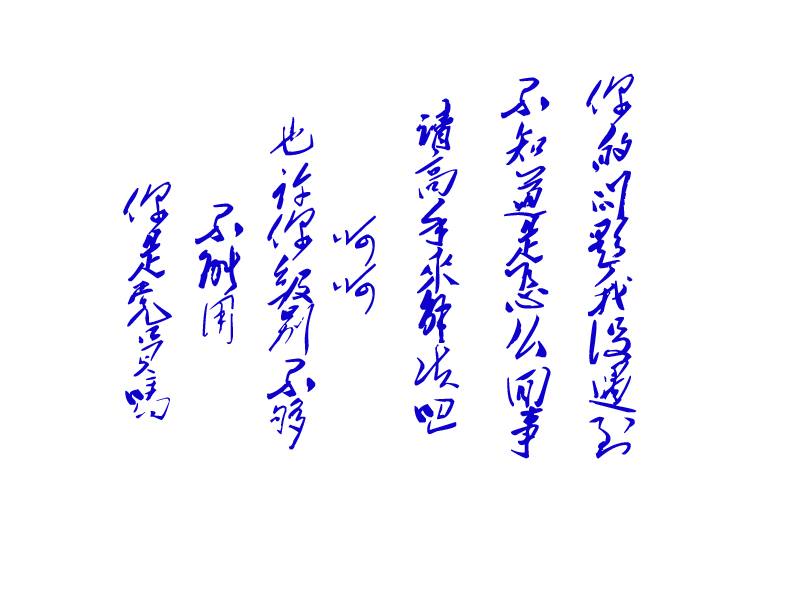 你的问题我没遇到
不知道是怎么回事
请高手来解决吧
呵呵
也许你级别不够
不能用
你是完员吗